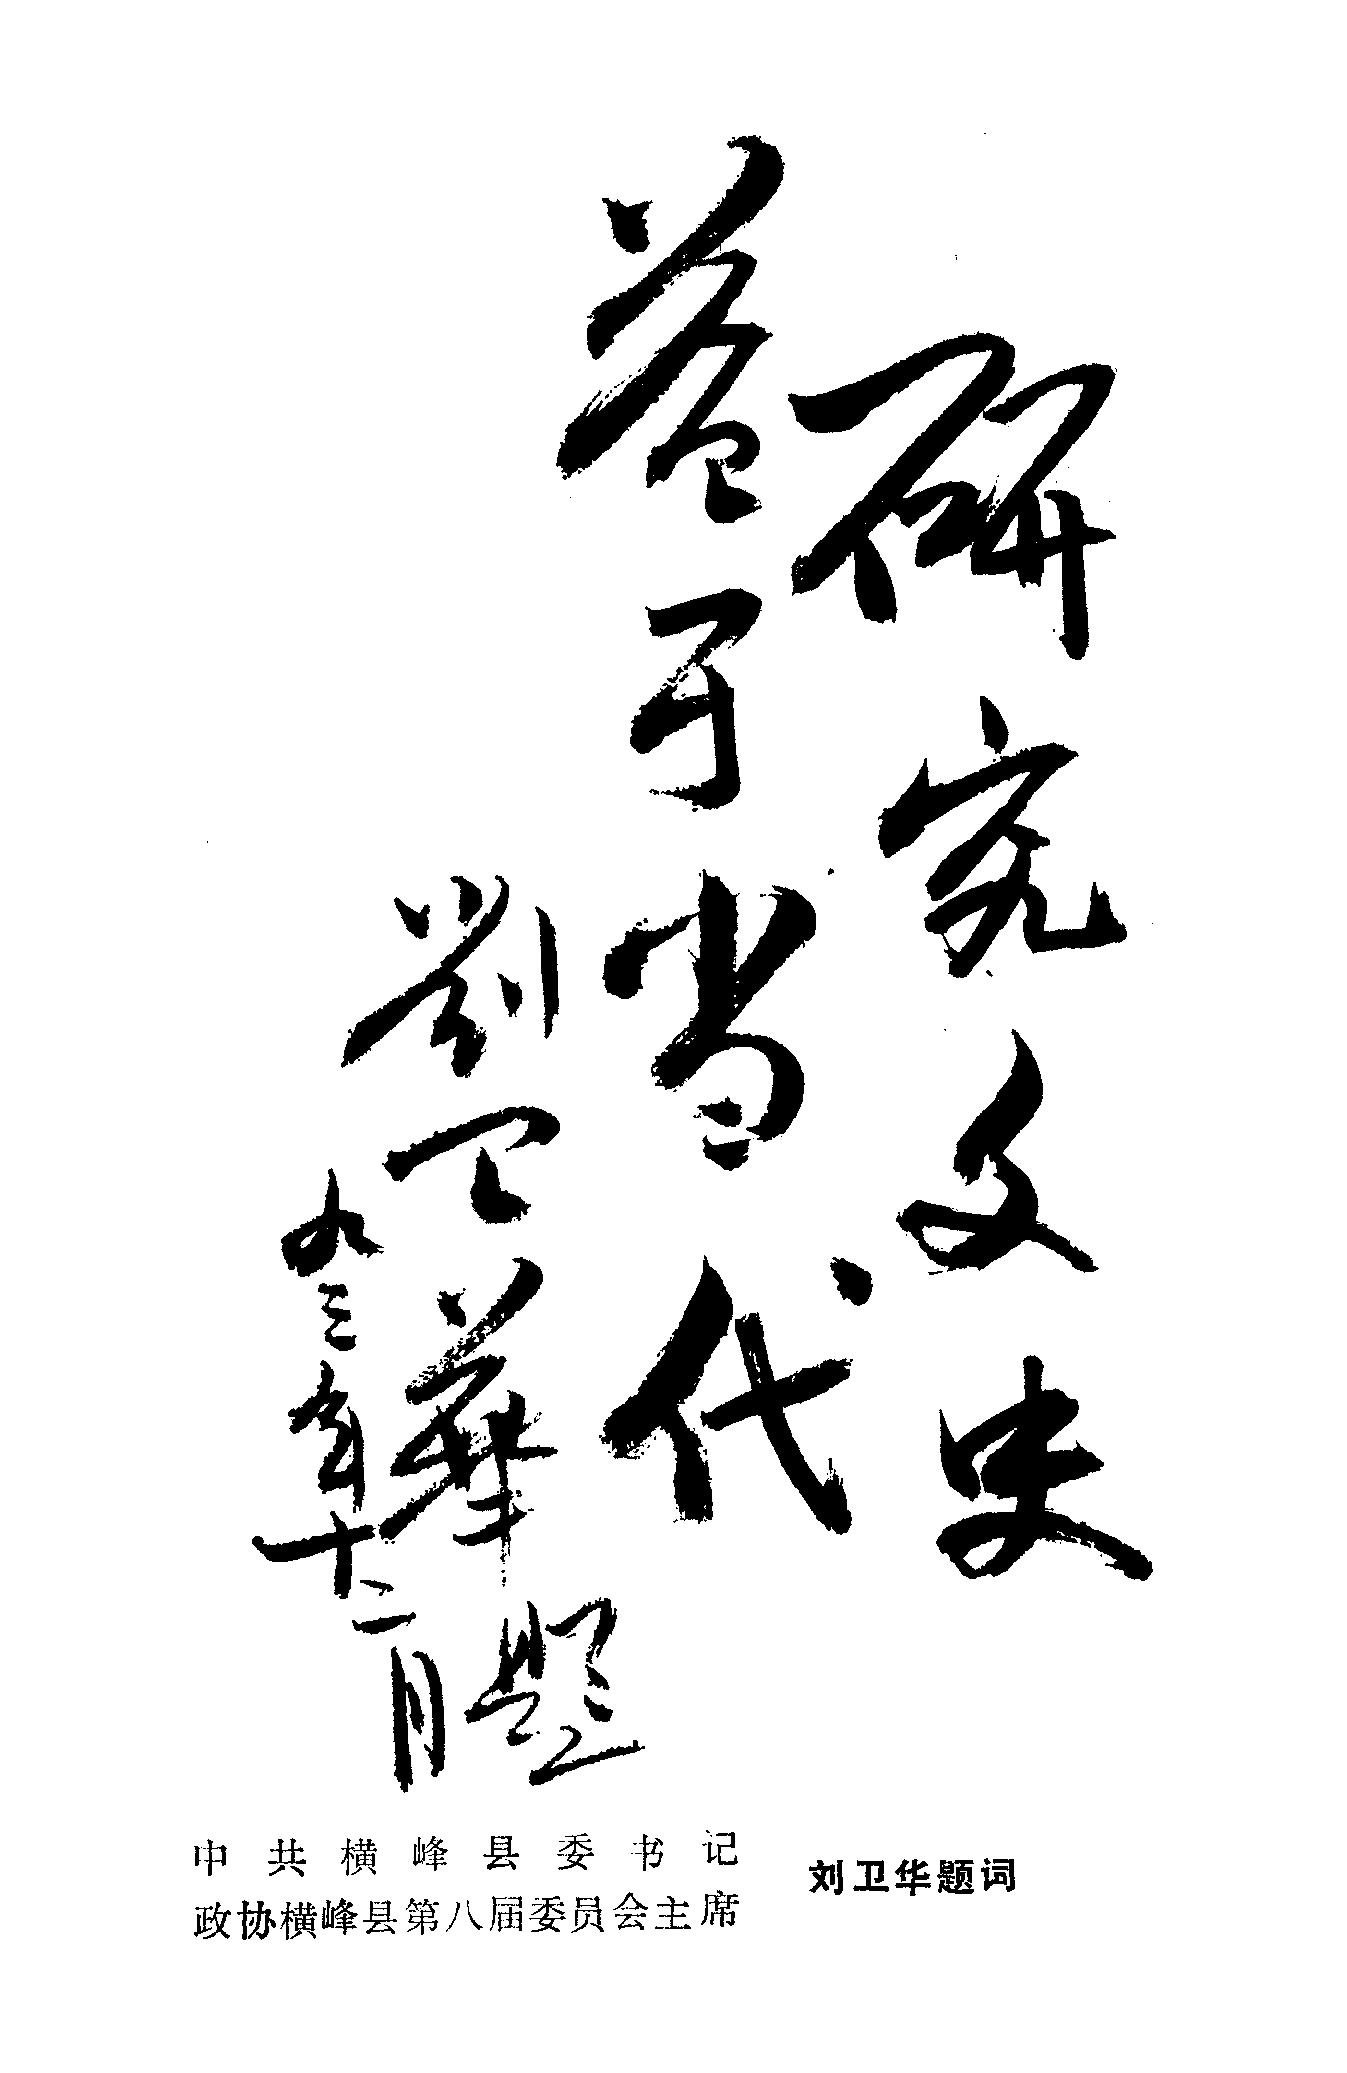 研究文史
益于当代
劉卫華题
九三年十二月
中共横峰县委书记
政协横峰县第八届委员会主席
刘卫华题词